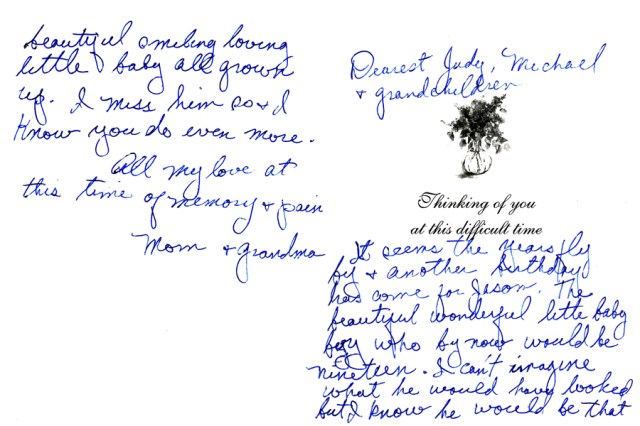 Dearest Judy, Michael
+ grandchildren
Thinking of you
at this difficult time
It seems the years fly
by + another birthday
has come for Jason. The
beautiful wonderful little baby
boy who by now would be
nineteen. I can't imagine
what he would have looked
but I know he would be that
beautiful smiling loving
little baby all grown
up. I miss him so + I
know you do even more.
All my love at
this time of memory + pain
Mom + grandma